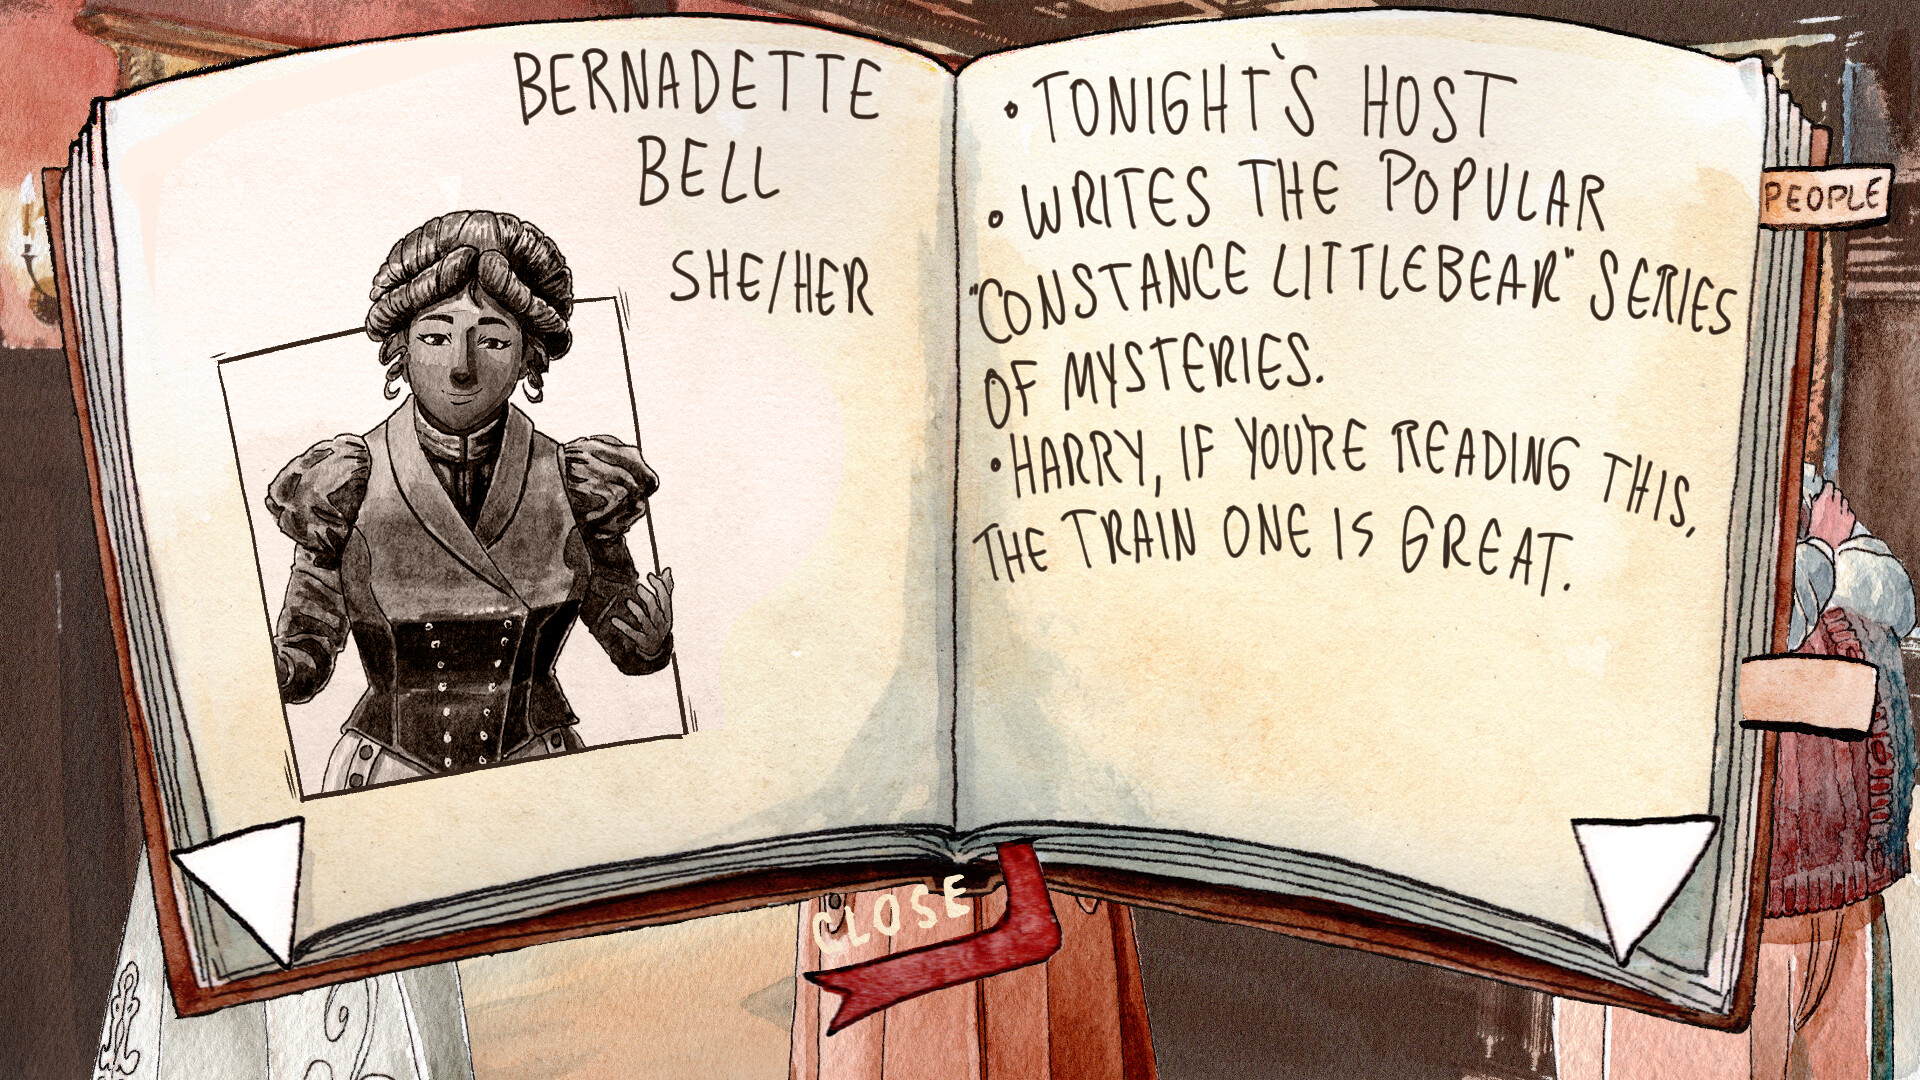 BERNADETTE
BELL
SHE/HER
• TONIGHT'S HOST
• WRITES THE POPULAR
"CONSTANCE LITTLEBEAR" SERIES
OF MYSTERIES.
• HARRY, IF YOU'RE READING THIS,
THE TRAIN ONE IS GREAT.
PEOPLE
CLOSE